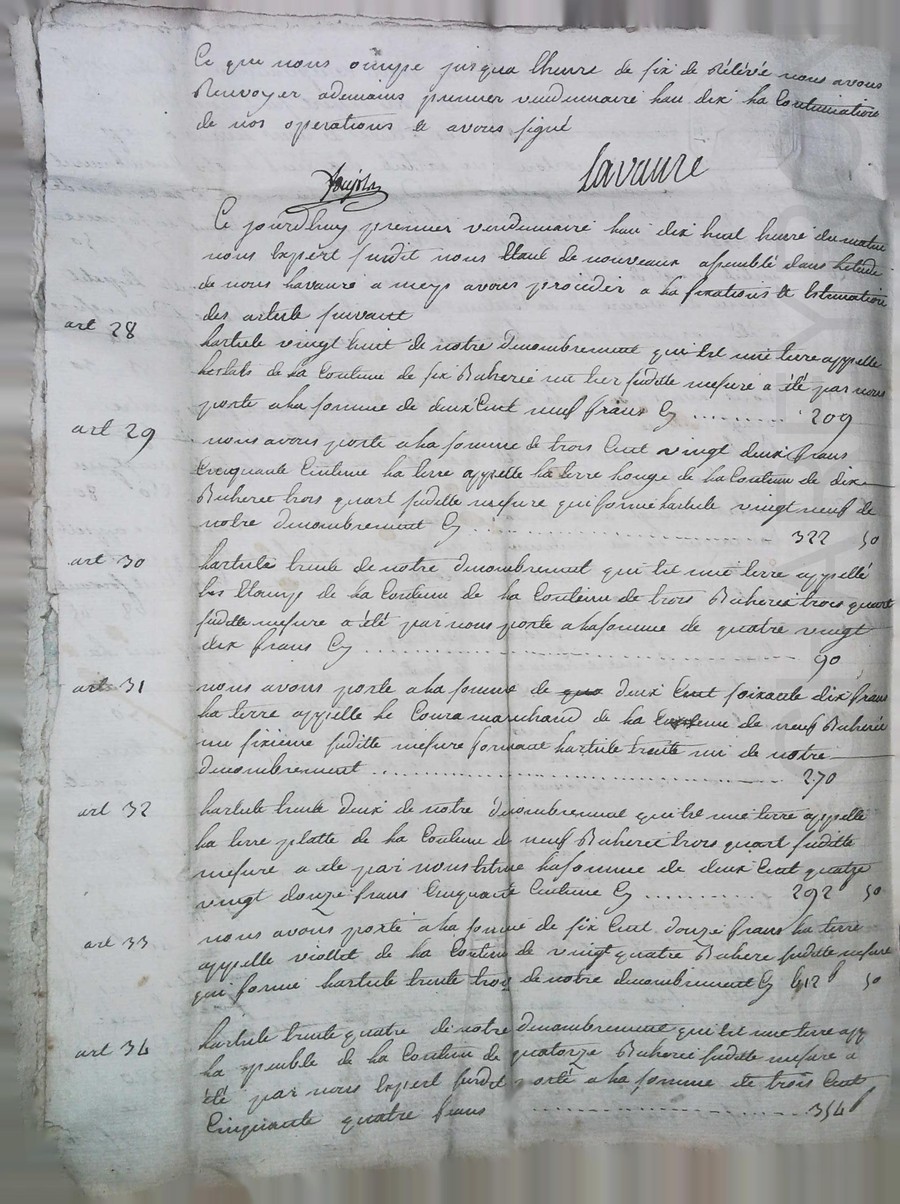 Ce que nous occupe jusqua lheure de six de Rélévé nous avons
Renvoyer ademains premier vendemiaire han dix ha Continuation
de nos operations & avons signé
Lavaure
Ce jourdhuy premier vendemiaire han dix huit heure du matin
nous Expert sudit nous Etant de nouveaux assemblé dans
de nous Lavaure a avons proceder a ha fixations & Estimation
des article suivant
art 28
harticle vingt huit de notre denombrement qui Est une terre appellé
de ha Contenue de six Boiteree un tier suditte mesure a été par nous
porte a ha somme de deux Cent neuf frans Cy 209
art 29
nous avons porte a ha somme de trois Cent vingt deux frans
Cinquante Centime ha terre appellé ha terre houge de ha Contenue de dix
trois quart suditte mesure qui forme harticle vingt neuf de
notre denombrement Cy 322 50
art 30
harticle trente de notre denombrement qui Est une terre appellé
hes Etangs de ha Contenue de ha Contenue de trois trois quart
suditte mesure a été par nous porte a ha somme de quatre vingt
dix frans Cy 90
art 31
nous avons porte a ha somme de deux Cent soixante dix frans
ha terre appellé he marchand de ha Contenue de neuf
un sixieme suditte mesure formant harticle trente un de notre
denombrement 270
art 32
harticle trente deux de notre denombrement qui Est une terre appellé
ha terre platte de ha Contenue de neuf trois quart suditte
mesure a été par nous ha somme de deux Cent quatre
vingt douze frans Cinquante Centime Cy 292 50
art 33
nous avons porté a ha somme de six Cent douze frans ha terre
appellé viollet de ha Contenue de vingt quatre suditte mesure
qui forme harticle trente trois de notre denombrement Cy 612 50
art 34
harticle trente quatre de notre denombrement qui Est une terre app
ha de ha Contenue de quatorze suditte mesure a
été par nous Expert surdit porté a ha somme de trois Cent
Cinquante quatre frans 354